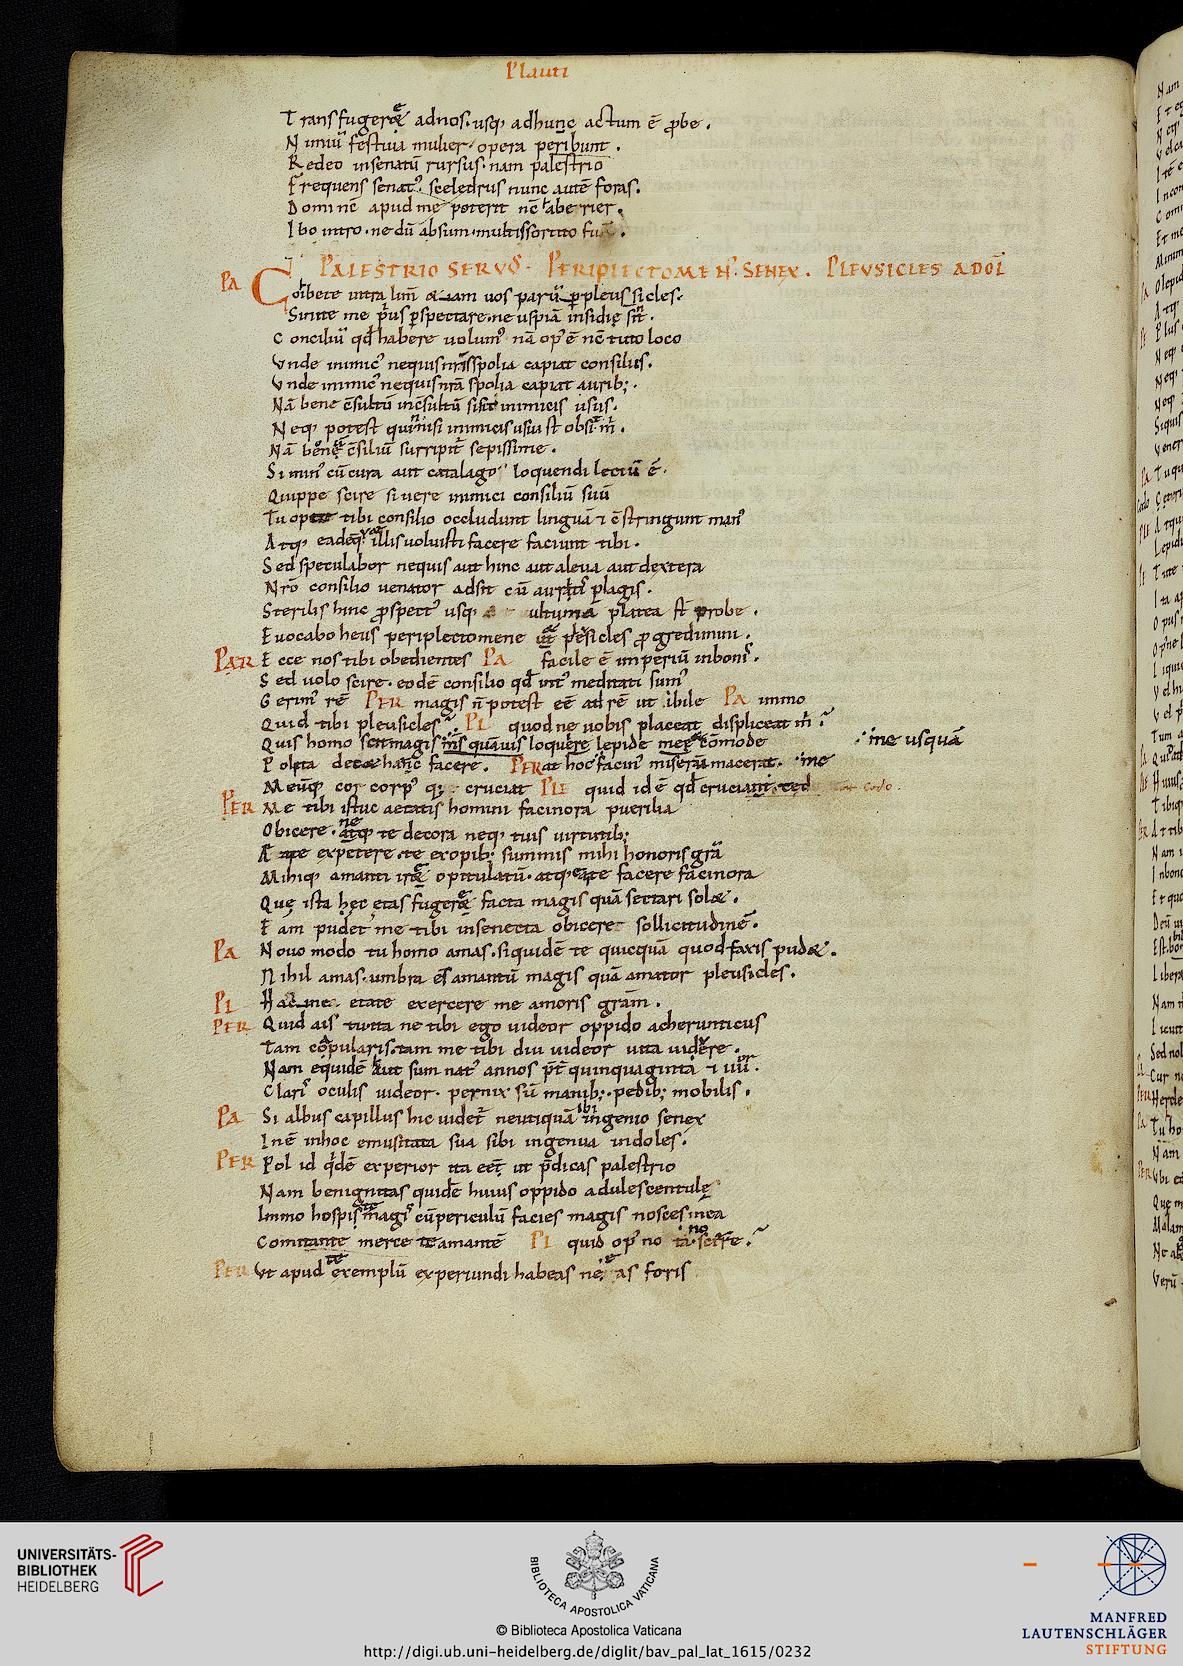 Plauti
Transfugerǣ adnos. usq; adhunc actum ē ꝓbe.
Nimiū festiuia mulier opera peribunt.
Redeo insenatū rursus. nam palestrio
Frequens senat᾽. sceledrus nunc autē foras.
Domi nē apud me poterit nē aberrier.
Ibo intro. ne dū absum. multissortito
PALESTRIO SERVS. PERIPLECTOMEN᾽. SENEX. PLEVSICLES ADOL
PA Cohibete intra lim̄ & iam uos parū ꝑ pleussicles.
Sinite me prius ꝑspectare. ne uspiā insidię sn̄t.
Conciliū qd̄ habere uolum᾽ nā op᾽ ē nē tuto loco
Vnde inimic᾽ nequis nrā spolia capiat consilus.
Vnde inimic᾽ nequis nrā spolia capiat aurib;.
Nā bene ēsultū inēsultū sist inimicis usus.
Neq; potest quinisi inimicis usui st obsi m̄.
Nā bone ēsiliū surripit᾽ sepissime.
Si min᾽ cū cura aut catalago loquendi lectū ē.
Quippe scire si uere inimici consiliū suū
Tuopte tibi consilio occludunt linguā & ēstringunt man᾽
Atq; eadēq; illis uoluisti facere faciunt tibi.
Sed speculabor nequis aut hinc aut aleua aut dextera
Nrō consilio uenator adsit cū aurit᾽ plagis.
Sterilis hinc ꝓspect᾽ usq; ultumā platea st̄ probe.
Euocabo heus periplectomene & plesicles ꝓgredimini.
PAR Ecce nos tibi obedientes PA facile ē imperiū inboni᾽.
Sed uolo scire. eodē consilio qd̄ int᾽ meditati sum᾽
Gerim᾽ rē PER magis n̄ potest eē ad rē ut ibile PA immo
Quid tibi pleusicles PL quod ne uobis placeat displiceat m̄
Quis homo sen magis m̄s quāuis loquere lepide meꝙ cōmode ine usquā
Polita decæ hanc facere. PER at hoc facin᾽ miserū macerat. me
Meūq; cor corp᾽ q; cruciat PLE quid id ē qd̄ cruciant. ced
PER Me tibi istuc aetatis homini facinora puerilia
Obicere. neq; te decora neq; tuis uirtutib;
A te expetere. te exopib; summis mihi honoris grā
Mihiq; amanti irǣ opitulatū. atq; eate facere facinora
Quę ista hęc etas fugerǣ facta magis quā sectari solæ.
Eam pudet me tibi insenecta obicere sollicitudinē.
PA Nouo modo tu homo amas. siquidē te quicquā quod faxis pudæ.
Nihil amas. umbra es amantū magis quā amator pleusicles.
PL Haccine etate exercere me amoris gram̄.
PER Quid ais tu itane tibi ego uideor oppido acherunticus
Tam cōpularis. tam me tibi diu uideor uita uidere.
Nam equidē haut sum nat᾽ annos p̄t quinquaginta & iiii᾽.
Clari᾽ oculis uideor. pernix sū manib;. pedib; mobilis.
PA Si albus capillus hic uidet᾽ neutiquā ingenio senex
Inē inhoc emusitata sua sibi ingenua indoles.
PER Pol id qdē experior ita eēt ut p̄dicas palestrio
Nam benignitas quidē huius oppido adulescentulę
Immo hospis magi᾽ cū periculū facies magis nosces mea
Comitante merce te amantē PL quid op᾽ no tā scire.
PER Vt apud te exemplū experiundi habeas ne as foris
UNIVERSITÄTS-
BIBLIOTHEK
HEIDELBERG
BIBLIOTECA APOSTOLICA VATICANA
© Biblioteca Apostolica Vaticana
http://digi.ub.uni-heidelberg.de/diglit/bav_pal_lat_1615/0232
MANFRED
LAUTENSCHLÄGER
STIFTUNG